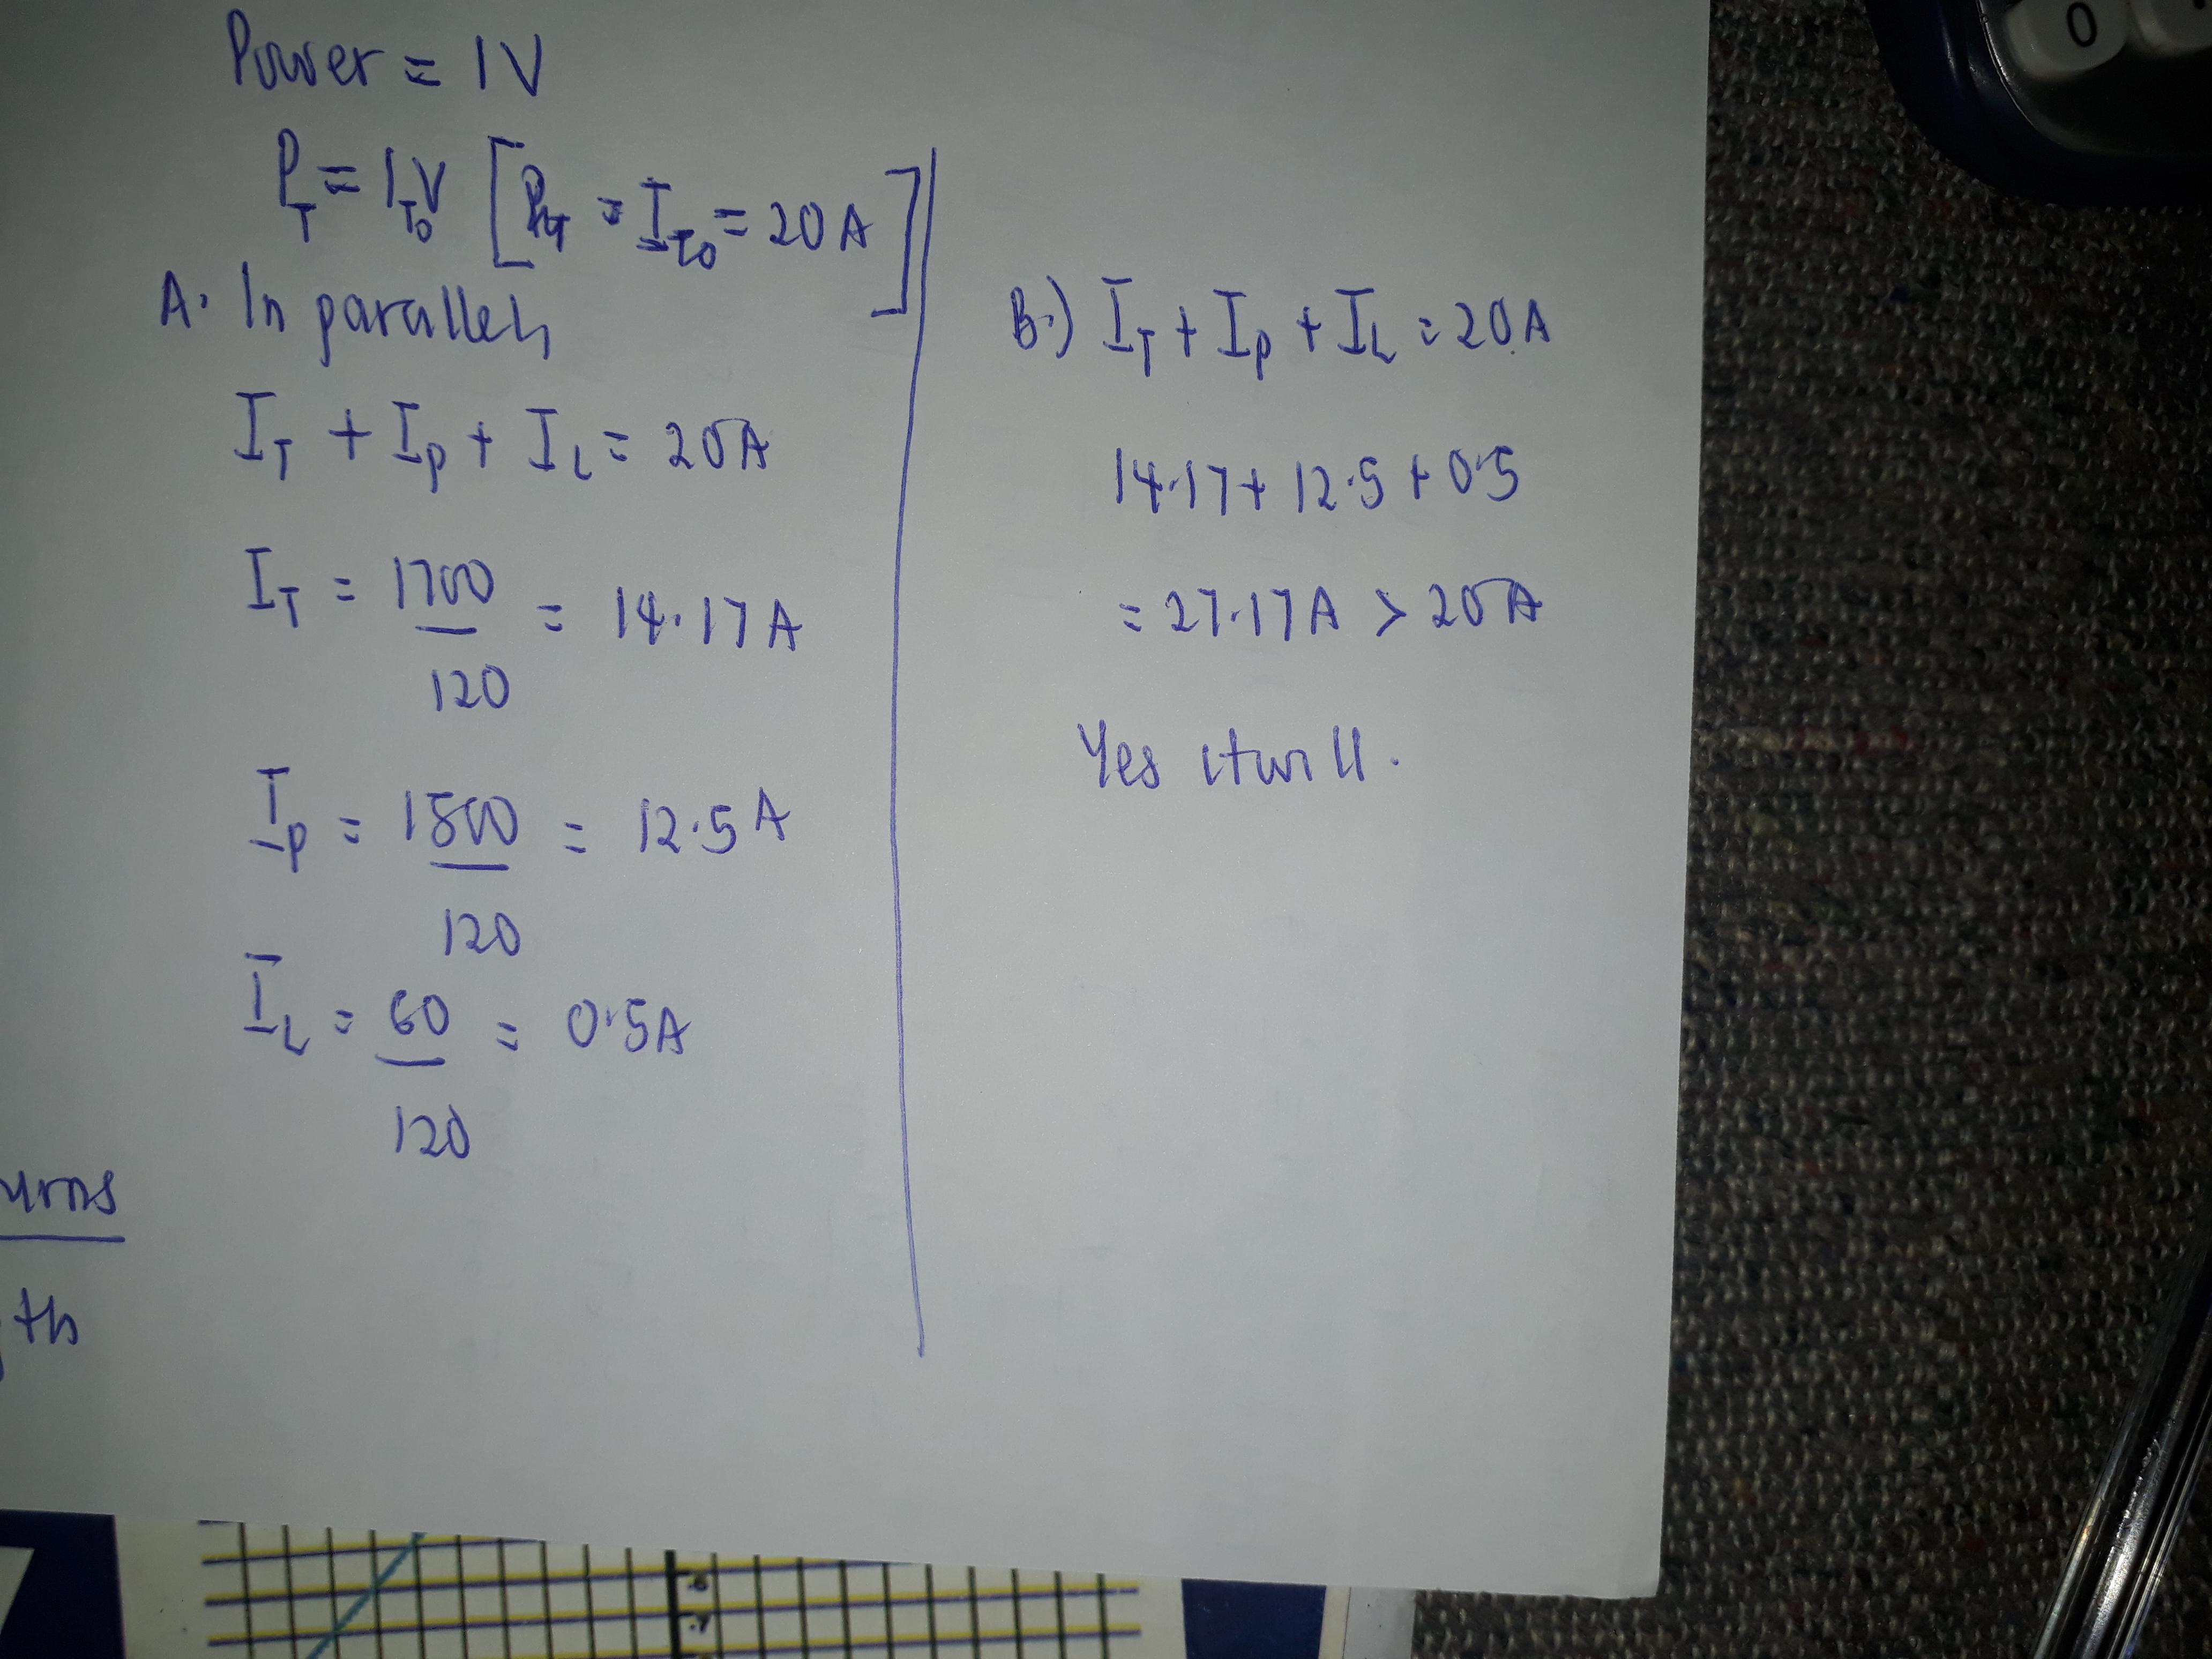 Power = IV
P_T = I_To V [P_4T = I_To = 20 A]
A. In parallel,
I_T + I_P + I_L = 20A
I_T = 1700 / 120 = 14.17 A
I_P = 1500 / 120 = 12.5 A
I_L = 60 / 120 = 0.5A
B.) I_T + I_P + I_L = 20A
14.17 + 12.5 + 0.5
= 27.17A > 20A
Yes it will.
urns
th
0